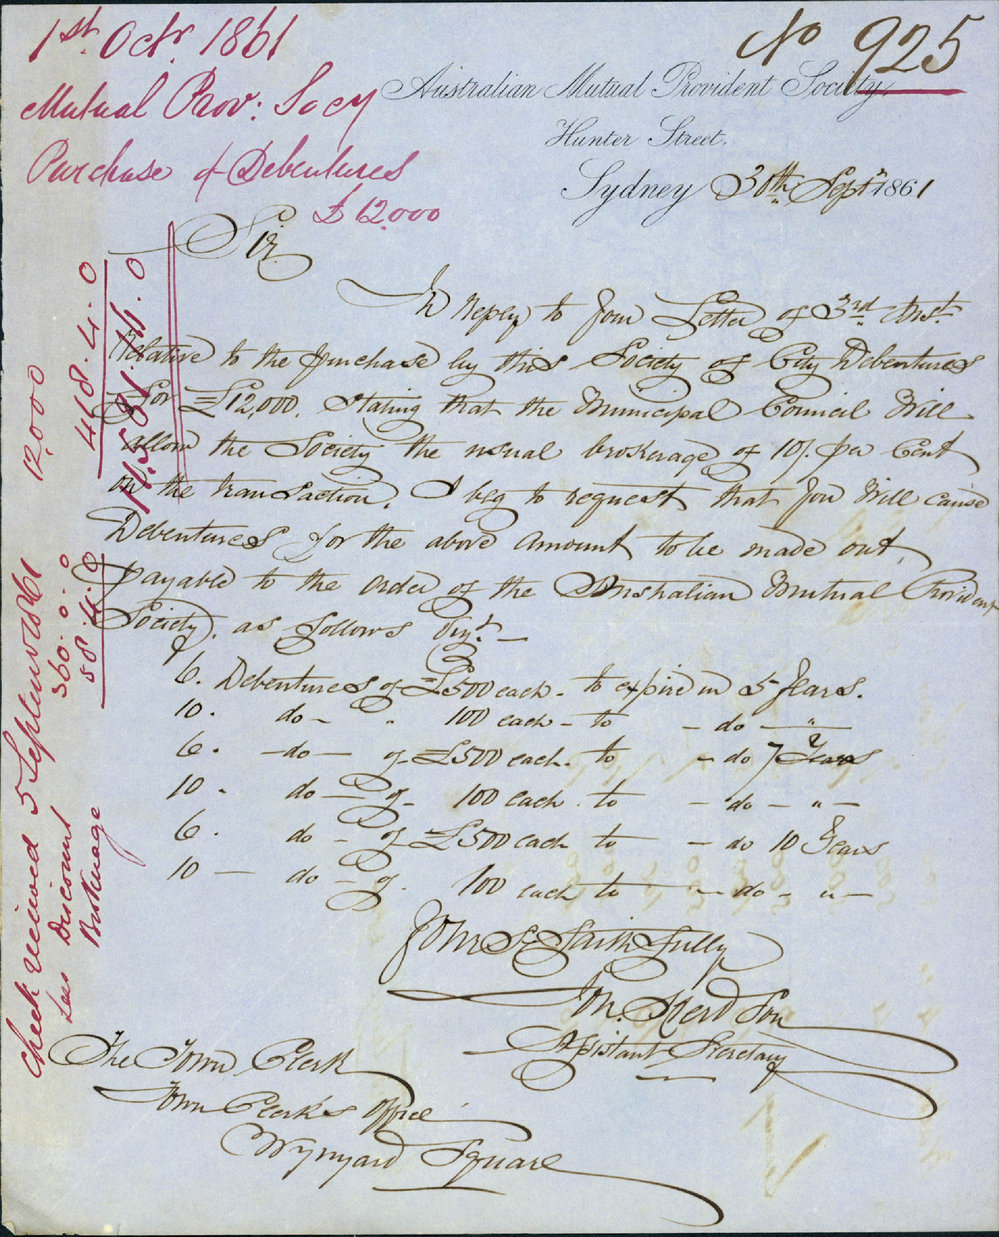 1st Octr. 1861
Mutual Prov: Socy
Purchase of Debentures
£12,000
No 925
Australian Mutual Provident Society.
Hunter Street.
Sydney 30th Septr 1861
Sir.
In reply to your Letter of 3rd Inst.
relative to the purchase by this Society of City Debentures
for £12,000. stating that the Municipal Council Will
allow the Society the usual brokerage of 10/. per Cent
on the transaction. I beg to request that you Will cause
Debentures for the above amount to be made out
payable to the order of the Australian Mutual Provident
Society. as follows
6. Debentures of £500 each. to expire in 5 years.
10. do - " 100 each - to - do - "
6. - do - of £500 each. to - do 7 Years
10 - do - of - 100 each. to - do - " -
6. do - of £500 each to - do 10 Years
10 - do - of. 100 each to - do - " -
Yours Faithfully
Assistant Secretary
The Town Clerk
Town Clerk's Office
Wynyard Square
Check received 5 September 61 12,000
Less Discount 360. 0. 0
Brokerage 58. 4. 0
418. 4. 0
11.581.16.0